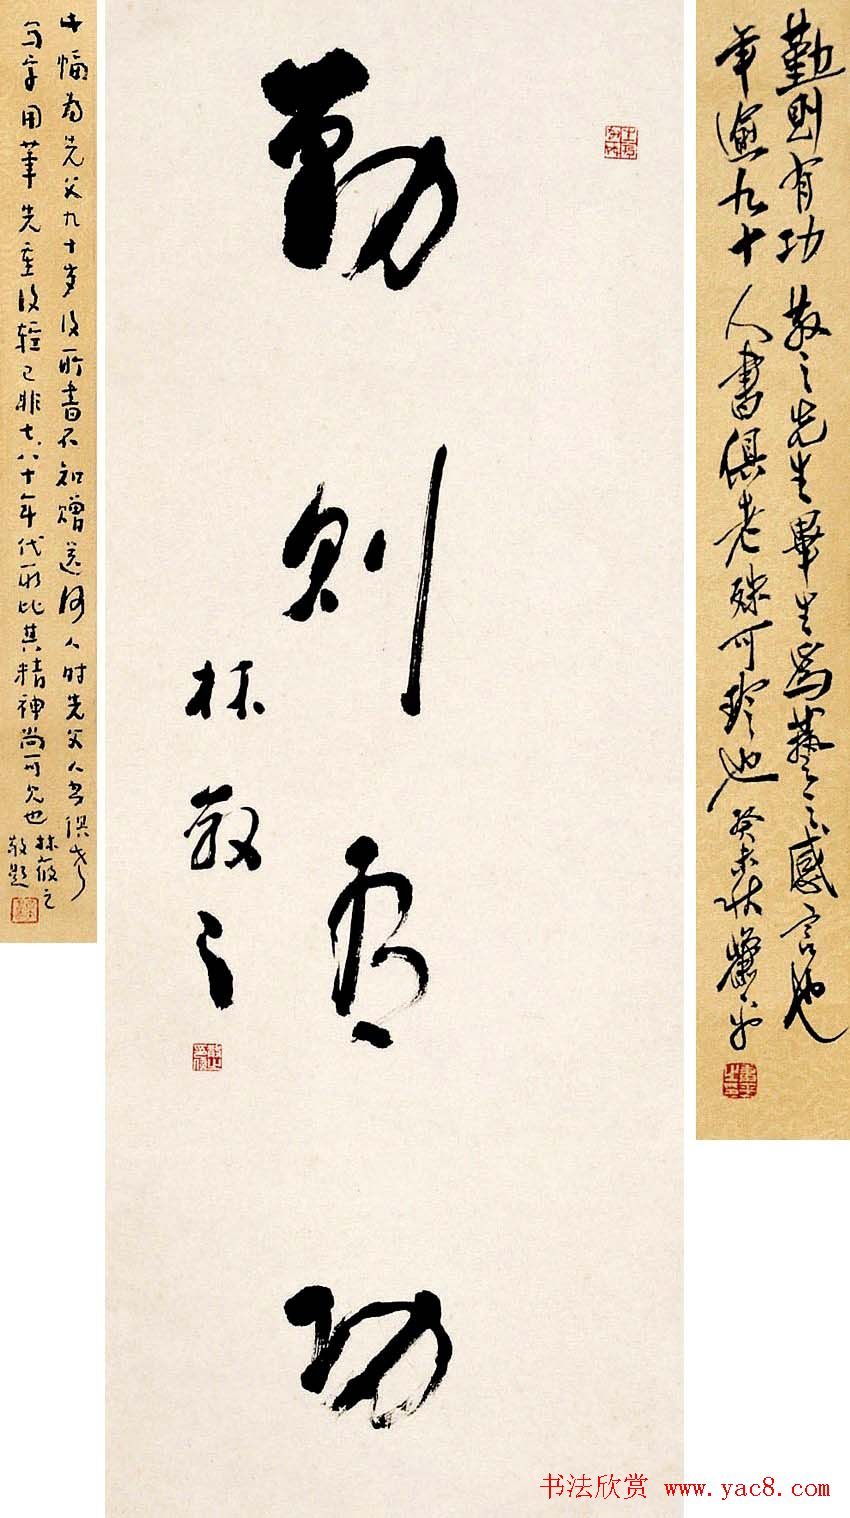 勤则有功
林散之
勤则有功 散之先生畢生為藝之感言也
年逾九十人書俱老殊可珍也 癸未秋
此幅為先父九十岁後所書不知赠送何人时先父人书俱老
写字用筆先重後轻已非七八十年代所比其精神尚可见也 林筱之
敬题
书法欣赏 www.yac8.com